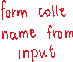 form colle
name from
input